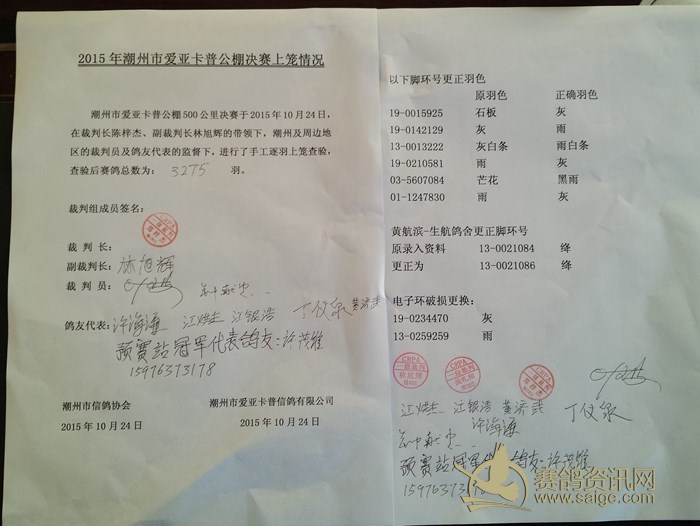 2015年潮州市爱亚卡普公棚决赛上笼情况
潮州市爱亚卡普公棚500公里决赛于2015年10月24日，
在裁判长陈梓杰、副裁判长林旭辉的带领下，潮州及周边地
区的裁判员及鸽友代表的监督下，进行了手工逐羽上笼查验，
查验后赛鸽总数为： 3275 羽。
裁判组成员签名：
裁 判 长：
副裁判长：林旭辉
裁 判 员：
鸽友代表：许海涌 江银浩 丁仪泉
预赛站冠军代表鸽友：许茂雄
15976373178
潮州市信鸽协会 潮州市爱亚卡普信鸽有限公司
2015年10月24日 2015年10月24日
以下脚环号更正羽色
原羽色 正确羽色
19-0015925 石板 灰
19-0142129 灰 雨
13-0013222 灰白条 雨白条
19-0210581 雨 灰
03-5607084 芒花 黑雨
01-1247830 雨 灰
黄航滨-生航鸽舍更正脚环号
原录入资料 13-0021084 绛
更正为 13-0021086 绛
电子环破损更换：
19-0234470 灰
13-0259259 雨
CRPA CRPA
江银浩 丁仪泉
许海涌
预赛站冠军代 鸽友：许茂雄
1597637317
赛鸽资讯网
www.saige.com